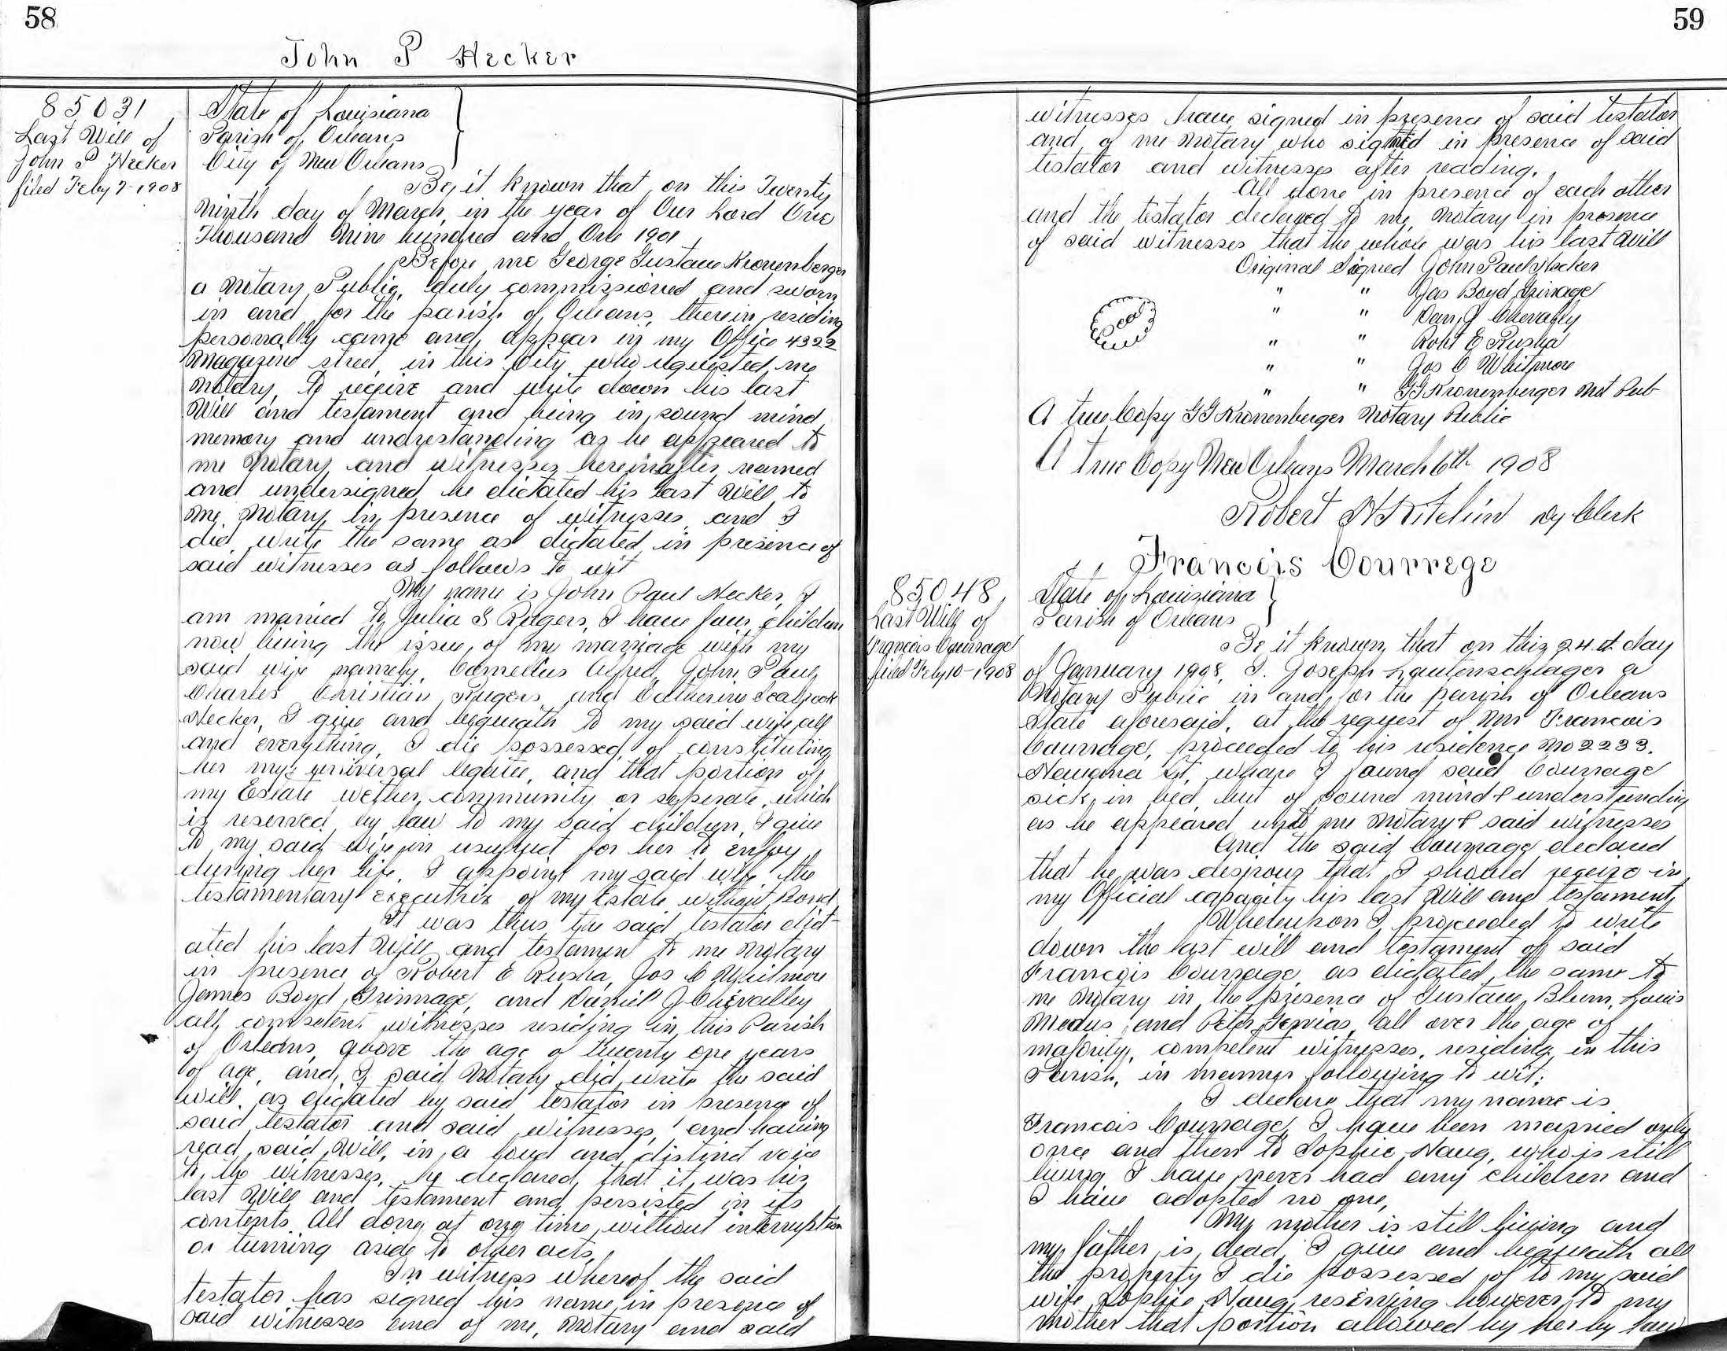 58
John P Hecker
85031
Last Will of
John P Hecker
filed Feby 7-1908
State of Louisiana
Parish of Orleans
City of New Orleans
Be it known that on this Twenty
Ninth day of March, in the year of Our Lord One
Thousand Nine hundred and One 1901
Before me George Gustave Kronenberger
a Notary Public, duly commissioned and sworn
in and for the parish of Orleans, therein residing
personally came and appear in my Office 4322
Magazine street, in this City, who requested me
Notary, to receive and write down his last
Will and testament and being in sound mind
memory and understanding as he appeared to
me Notary and witnesses hereinafter named
and undersigned he dictated his last Will to
me Notary in presence of witnesses and I
did write the same as dictated in presence of
said witnesses as follows to wit
My name is John Paul Hecker, I
am married to Julia S Rogers, I have four children
now living the issue, of my marriage with my
said wife namely, Cornelius Alfred, John Paul
Charles Christian Rogers and Catherine
Hecker, I give and bequeath to my said wife all
and everything, I die possessed of constituting
her my universal legatee, and that portion of
my Estate wether, community or seperate, which
is reserved by law to my said children, I give
to my said wife in usufruct for her to enjoy
during her life. I appoint my said wife the
testamentary executrix of my Estate without Bond
It was thus the said testator dict
ated his last Will and testament to me Notary
in presence of Robert E Rusha, Jos C Whitmore
James Boyd Grinnage, and Daniel J Chevalley
all competent witnesses residing in this Parish
of Orleans, above the age of twenty one years
of age, and I said Notary did write the said
will as dictated by said testator in presence of
said testator and said witnesses, and having
read said Will, in a loud and distinct voice
to the witnesses, he declared, that it was his
last Will and testament and persisted in its
contents. All done at one time, without interruption
or turning aside to other acts.
In witness whereof the said
testator has signed his name in presence of
said witnesses and of me, Notary and said
59
witnesses have signed in presence of said testator
and of me Notary who signed in presence of said
testator and witnesses after reading.
All done in presence of each other
and the testator declared to me, Notary in presence
of said witnesses that the whole was his last Will
Original Signed John Paul Hecker
" " Jas Boyd Grinnage
Seal
" " Dan J Chevalley
" " Robt E Rusha
" " Jos C Whitmore
" " GG Kronenberger Not Pub
A true Copy GG Kronenberger Notary Public
A True Copy New Orleans March 6th 1908
Robert H Dy Clerk
Francis Courrege
85048
Last Will of
Francois Courrage
filed Feby 10-1908
State of Louisiana
Parish of Orleans
Be it known that on this 24th day
of January 1908, I. Joseph Lautenschlager a
Notary Public in and for the parish of Orleans
State aforesaid, at the request of Mr Francois
Courrage, proceeded to his residence No 2233.
St. where I found said Courrage
sick in bed but of sound mind & understanding
as he appeared unto me Notary & said witnesses
And the said Courrage declared
that he was desirous that I should receive in
my Official capacity his last Will and testament
Whereupon I proceeded to write
down the last will and testament of said
Francois Courrage, as dictated the same to
me Notary in the presence of Gustave Blum, Louis
Medus and Peter all over the age of
majority, competent witnesses, residing in this
Parish, in manner following to wit;
I declare that my name is
Francois Courrage, I have been married only
once and then to Sophie Haug, who is still
living I have never had any children and
I have adopted no one,
My mother is still living and
my father is dead I give and bequeath all
the property I die possessed of to my said
wife Sophie Haug reserving however to my
mother that portion allowed by her by law